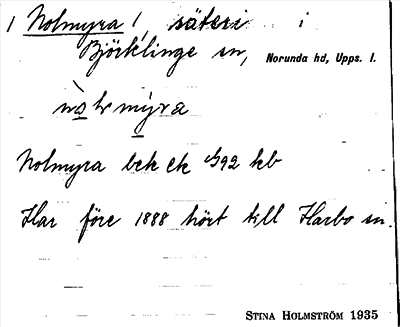 / Nolmyra /, säteri i
Björklinge sn, Norunda hd, Upps. l.
Nolmyra bek ek 1/92 kb
Har före 1888 hört till Harbo sn.
STINA HOLMSTRÖM 1935